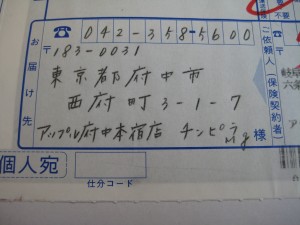 042-358-5600
お届け先
183-0031
東京都府中市
西府町3-1-7
アップル府中本宿店 チンピラMg 様
ご依頼人(保険契約者)
個人宛
仕分コード